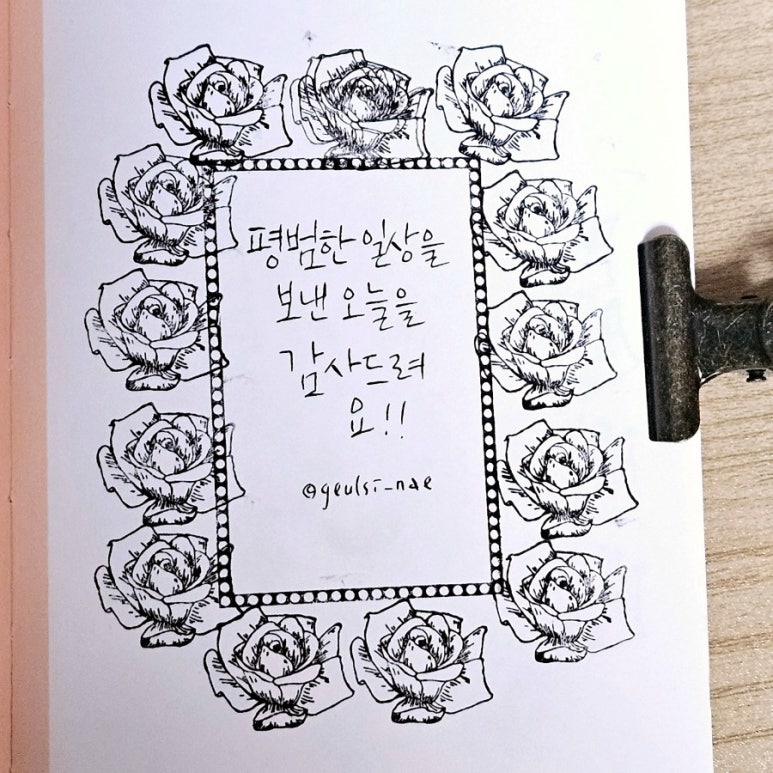 평범한 일상을
보낸 오늘을
감사드려
요!!
@geulsi_nae